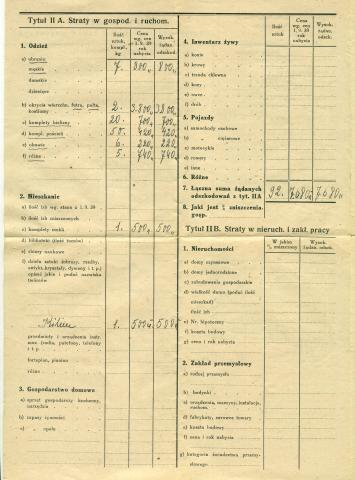 Tytuł II A. Straty w gospod. i ruchom.
Ilość sztuk, kompl., kg
Cena wg. cen 1. 9. 39 rok nabycia
Wysok. żądan. odszkod.
1. Odzież
a) ubrania
męskie 7. 800 800
damskie
dziecięce
b) okrycia wierzchn. futra, palta, kostiumy 2. 3.800 3.800
c) komplety bielizny 20. 700 700
d) kompl. pościeli 50. 420 420
e) obuwie 6. 220 220
f) różne 5. 740 740
2. Mieszkanie
a) ilość izb wg. stanu z 1. 9. 39
b) ilość izb zniszczonych
c) komplety mebli 1. 500 500
d) biblioteki (ilość tomów)
e) zbiory naukowe
f) dzieła sztuki (obrazy, rzeźby, antyki, kryształy, dywany i t p.) opisać jakie i podać nazwiska twórców
1. 500 500
przedmioty i urządzenia instr. zaw. (radia, patefony, telefony i t p.
fortepian, pianino
różne
3. Gospodarstwo domowe
a) sprzęt gospodarczy kuchenny, narzędzia
b) zapasy żywności
c) „ opału
Ilość sztuk
Cena wg. cen 1. 9. 39 rok nabycia
Wysok. żądan. odszk.
4. Inwentarz żywy
a) konie
b) krowy
c) trzoda chlewna
d) kozy
e) owce
f) drób
5. Pojazdy
a) samochody osobowe
b) „ ciężarowe
c) motocykle
d) rowery
e) inne
6. Różne
7. Łączna suma żądanych odszkodowań z tyt. II A 92. 7.680 7.680
8. Jaki jest % zniszczenia gosp.
Tytuł II B. Straty w nieruch. i zakł. pracy
W jakim % zniszczony
Wysok. żądan. odszk.
1. Nieruchomości
a) domy czynszowe
b) domy jednorodzinne
c) zabudowania gospodarskie
d) wielkość domu (podać ilość mieszkań)
ilość izb
e) Nr. hipoteczny
f) koszta budowy
g) cena i rok nabycia
2. Zakład przemysłowy
a) rodzaj przemysłu
b) budynki
c) urządzenia, maszyny, instalacje, ruchom.
d) fabrykaty, surowce towary
e) koszta budowy
f) cena i rok nabycia
g) kategoria świadectwa przemysłowego.